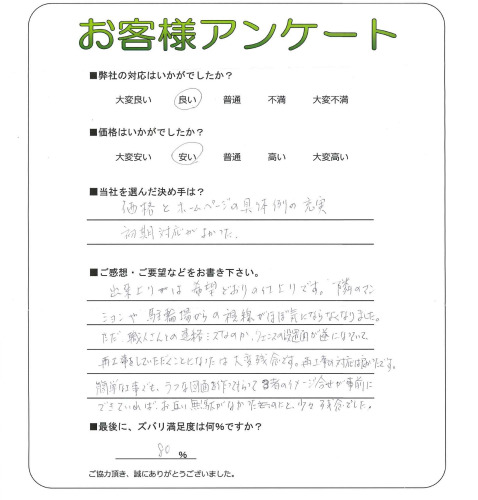 お客様アンケート
■弊社の対応はいかがでしたか？
大変良い 良い 普通 不満 大変不満
■価格はいかがでしたか？
大変安い 安い 普通 高い 大変高い
■当社を選んだ決め手は？
価格とホームページの具体例の充実
初期対応がよかった。
■ご感想・ご要望などをお書き下さい。
出来上がりは希望どおりの仕上りです。隣のマン
ションや駐輪場からの視線がほぼ気にならなくなりました。
ただ、職人さんとの連絡ミスなのか、フェンスの裏面が逆になっていて、
再工事をしていただくこととなったのは大変残念です。再工事の対応は
簡単な工事でも、ラフな図面を作ってもらって3者のイメージ合せが事前に
できていれば、お互い無駄がなかったものと、少々残念でした。
■最後に、ズバリ満足度は何%ですか？
80 %
ご協力頂き、誠にありがとうございました。